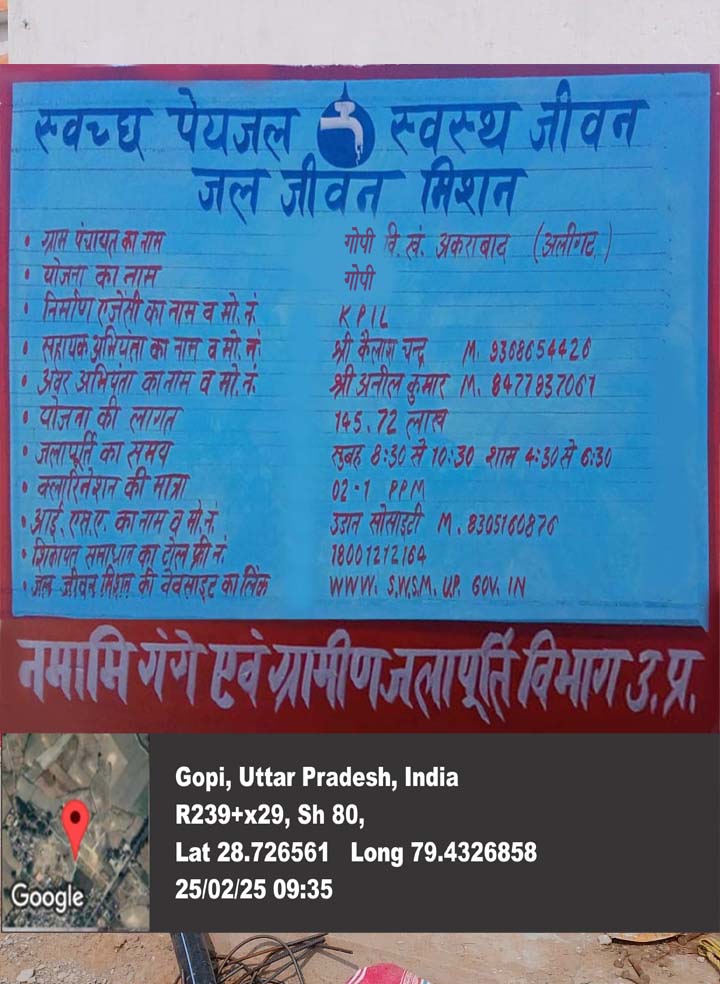 स्वच्छ पेयजल स्वस्थ जीवन
जल जीवन मिशन
• ग्राम पंचायत का नाम गोपी वि. खं. अकराबाद (अलीगढ़)
• योजना का नाम गोपी
• निर्माण एजेंसी का नाम व मो. नं. KPIL
• सहायक अभियंता का नाम व मो. नं. श्री कैलाश चन्द्र M. 9368654426
• अवर अभियंता का नाम व मो. नं. श्री अनील कुमार M. 8477837061
• योजना की लागत 145.72 लाख
• जलापूर्ति का समय सुबह 8:30 से 10:30 शाम 4:30 से 6:30
• क्लारिनेशन की मात्रा 02-1 PPM
• आई. एस. ए. का नाम व मो. नं. उडान सोसाइटी M. 8305160876
• शिकायत समाधान का टोल फ्री नं. 18001212164
• जल जीवन मिशन की वेवसाइट का लिंक WWW. S.W.S.M. U.P. GOV. IN
नमामि गंगे एवं ग्रामीण जलापूर्ति विभाग उ. प्र.
Gopi, Uttar Pradesh, India
R239+x29, Sh 80,
Lat 28.726561 Long 79.4326858
25/02/25 09:35
Google